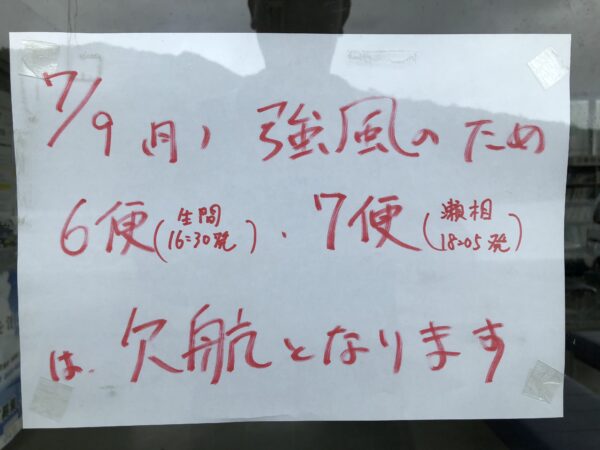 7/9(月)強風のため
6便(生間16:30発)、7便(瀬相18:05発)
は、欠航となります